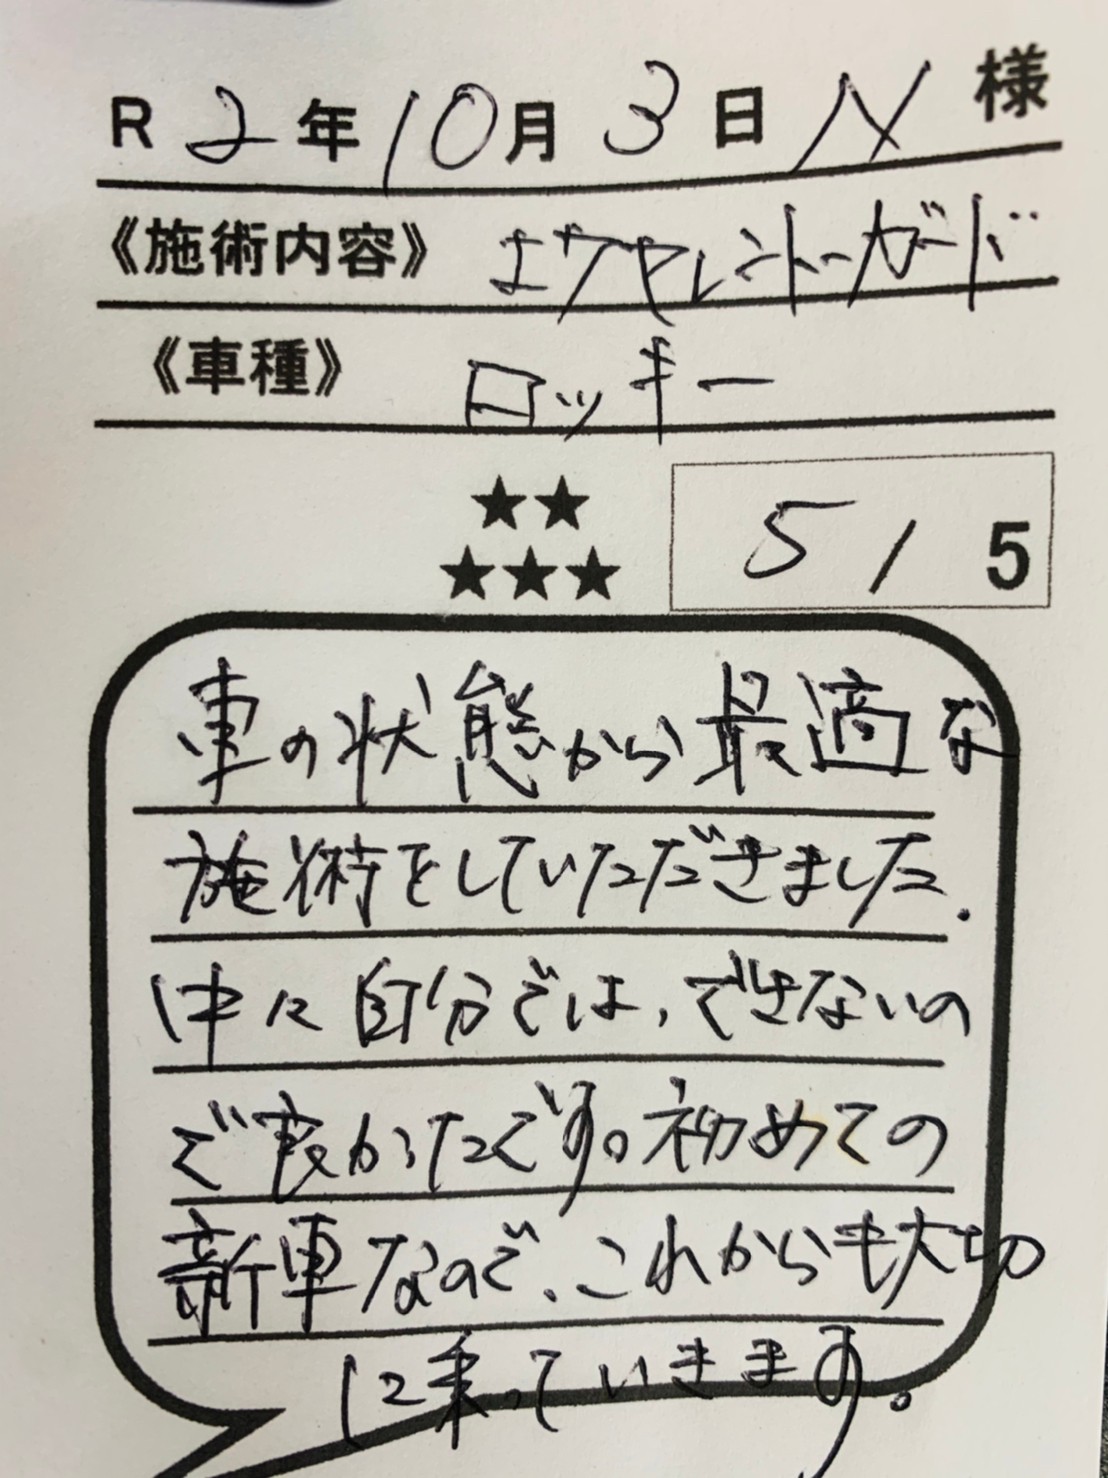 R 2年10月3日 N 様
《施術内容》 エクセレントガード
《車種》 ロッキー
★★
★★★ 5/5
車の状態から最適な
施術をしていただきました.
中々自分では、できないの
で良かったです。初めての
新車なので、これからも大切
に乗っていきます。